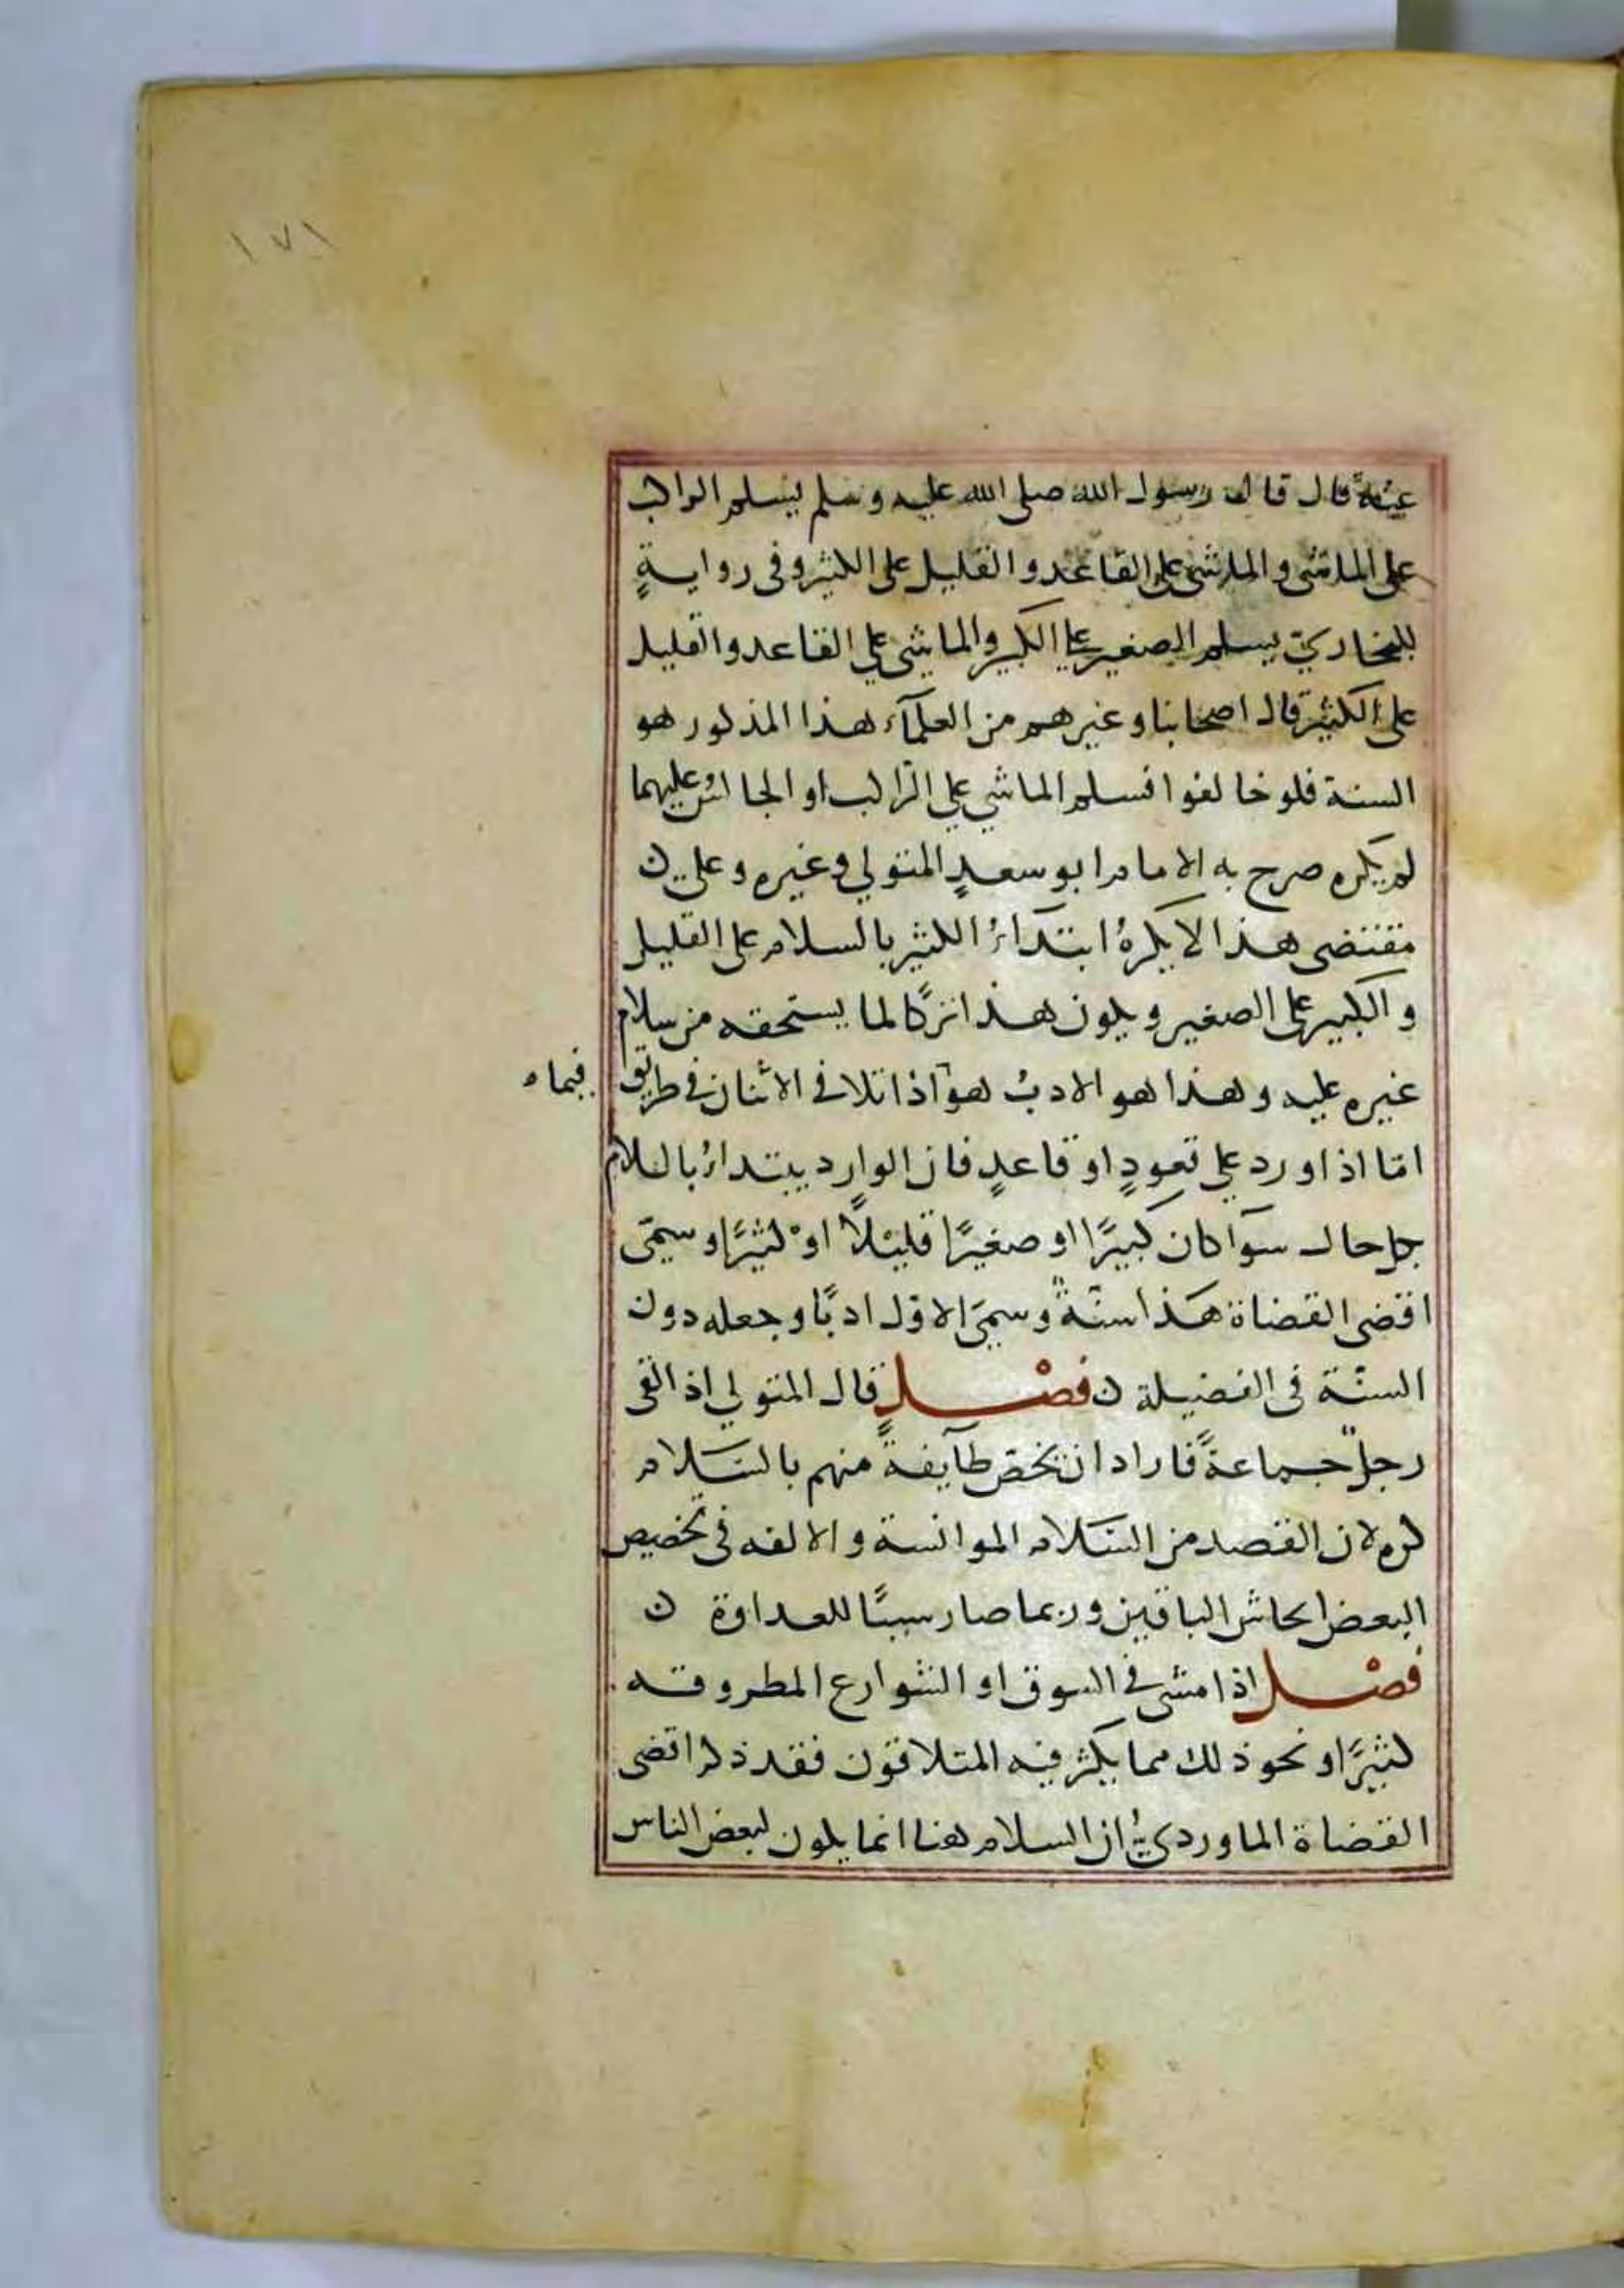 ١٧١
عنه قال قال رسول الله صلى الله عليه وسلم يسلم الراكب
على الماشي والماشي على القاعد والقليل على الكثير وفى روايةٍ
للبخاريّ يسلم الصغير على الكبير والماشي على القاعد والقليل
على الكثير قال اصحابنا وغيرهم من العلمآء هذا المذكور هو
السنة فلو خالفوا فسلم الماشي على الراكب او الجالس عليهما
لم يكره صرح به الامام ابو سعدٍ المتولي وغيره وعلى ن
مقتضى هذا لا يكرهُ ابتدآءُ الكثير بالسلام على القليل
والكبير على الصغير ويكون هذا تركًا لما يستحقه من سلام
غيره عليه وهذا هو الادبُ هو اذا تلاقى الاثنان فى طريق
فيما
امّا اذا ورد على قعودٍ او قاعدٍ فان الوارد يبتداءُ بالسلام
بكل حال سوآ كان كبيرًا او صغيرًا قليلًا اوْ كثيرًا وسمّى
اقضى القضاة هذا سنّةً وسمّى الاوّل ادبًا وجعله دون
السنّة فى الفضيلة ن فصْلٍ قال المتولي اذا لقى
رجلٌ جماعةً فاراد ان يخصّ طآيفةً منهم بالسَلام
كره لان القصد من السَلام الموانسة والالفه فى تخصيص
البعض ايحاش الباقين وربما صار سببًا للعداوة ن
فصْل اذا مشى فى السوق او الشوارع المطروقه
كثيرًا ونحو ذلك مما يكثر فيه المتلاقون فقد ذكر اقضى
القضاة الماورديُّ ان السلام هنا انما يكون لبعض الناس